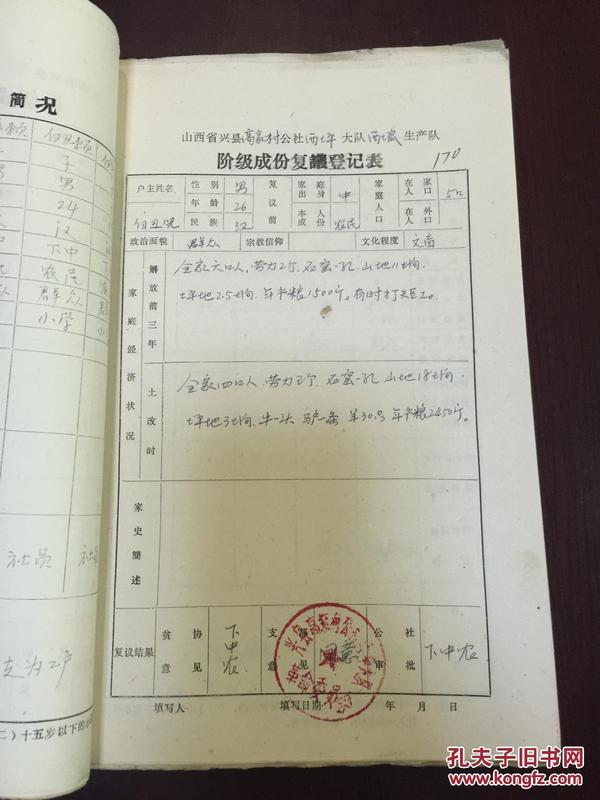 简况
子
男
24
汉
下中
农民
群众
小学
社员
二）十五岁以下的小
山西省兴县高家村公社西坪大队西坡生产队
阶级成份复议登记表
170
户主姓名 性别 男 复议前 家庭出身 中 家庭人口 在家人口 5口
年龄 26
民族 汉 本人成份 农民 在外人口
政治面貌 群众 宗教信仰 文化程度 文盲
家庭经济状况
解放前三年
全家六口人，劳力2个，石窑一孔，山地11垧，
坪地2.5垧，年产粮1500斤。有时打短工。
土改时
全家四口人，劳力2个，石窑一孔，山地18垧，
坪地3垧，牛一头，驴一条，羊30只，年产粮2450斤。
家史简述
复议结果 贫协意见 下中农 支部意见 同意 公社审批 下中农
填写人 填写日期 年 月 日
孔夫子旧书网
www.kongfz.com